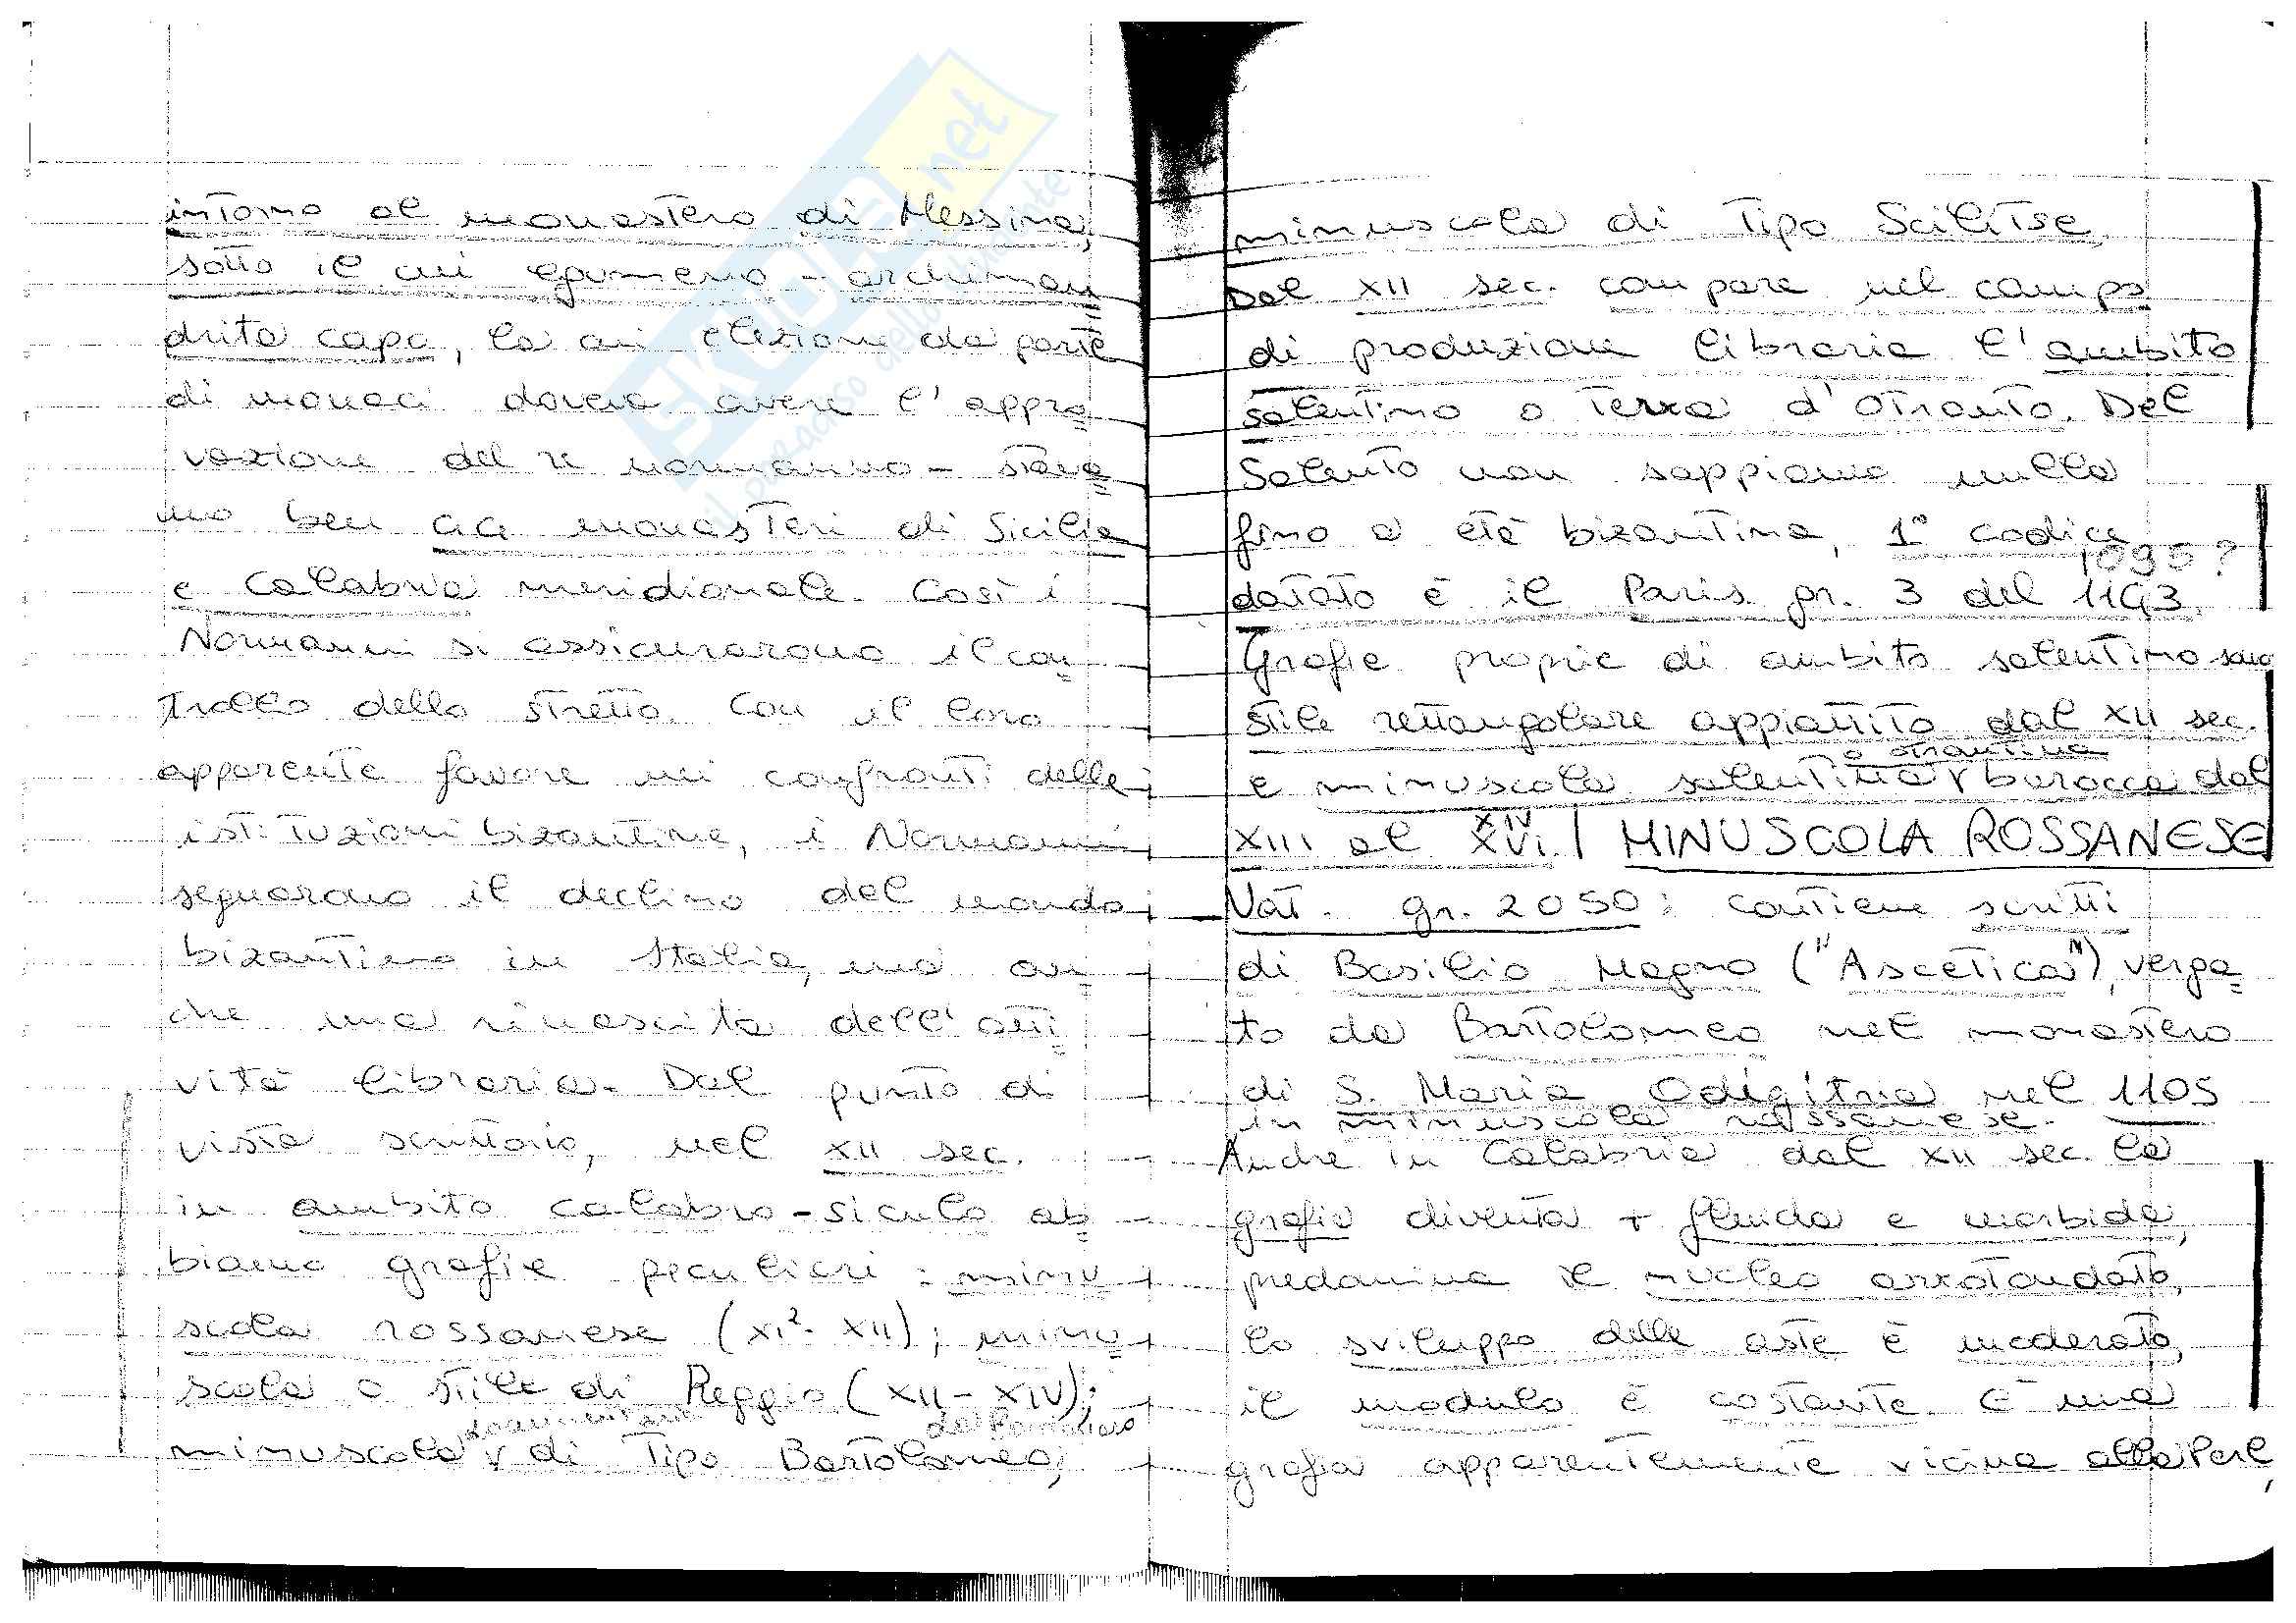 intorno al monastero di Messina,
sotto il cui egumeno - archiman
drita capo, la cui elezione da parte
di monaci doveva avere l'appro
vazione del re normanno - stava
no ben 44 monasteri di Sicilia
e Calabria meridionale. Così i
Normanni si assicurarono il con
trollo dello stretto. Con il loro
apparente favore nei confronti delle
istituzioni bizantine, i Normanni
segnarono il declino del mondo
bizantino in Italia, ma an
che una rinascita dell'atti
vità libraria. Dal punto di
vista scrittorio, nel XII sec.
in ambito calabro-siculo ab
biamo grafie peculiari: minu
scola rossanese (XI². XII); minu
scola o stile di Reggio (XII-XIV);
documentaria
minuscola v di tipo Bartolomeo,
minuscola di tipo Scilitse,
Dal XII sec. compare nel campo
di produzione libraria l'ambito
salentino o Terra d'Otranto. Del
Salento non sappiamo nulla
fino a età bizantina, 1° codice
1095?
datato è il Paris. gr. 3 del 1143.
Grafie proprie di ambito salentino sono
stile rettangolare appiattito dal XII sec.
o otrantina
e minuscola salentina v barocca dal
XIV
XIII al XVI. | MINUSCOLA ROSSANESE
Vat. gr. 2050: contiene scritti
di Basilio Magno ("Ascetica"), verga
to da Bartolomeo nel monastero
di S. Maria Odigitria nel 1105
in minuscola rossanese.
Anche in Calabria dal XII sec. la
grafia diventa + fluida e morbida,
predomina il nucleo arrotondato,
lo sviluppo delle aste è moderato,
il modulo è costante. È una
grafia apparentemente vicina alla Perl,
SKUOLA.net
il paradiso dello studente